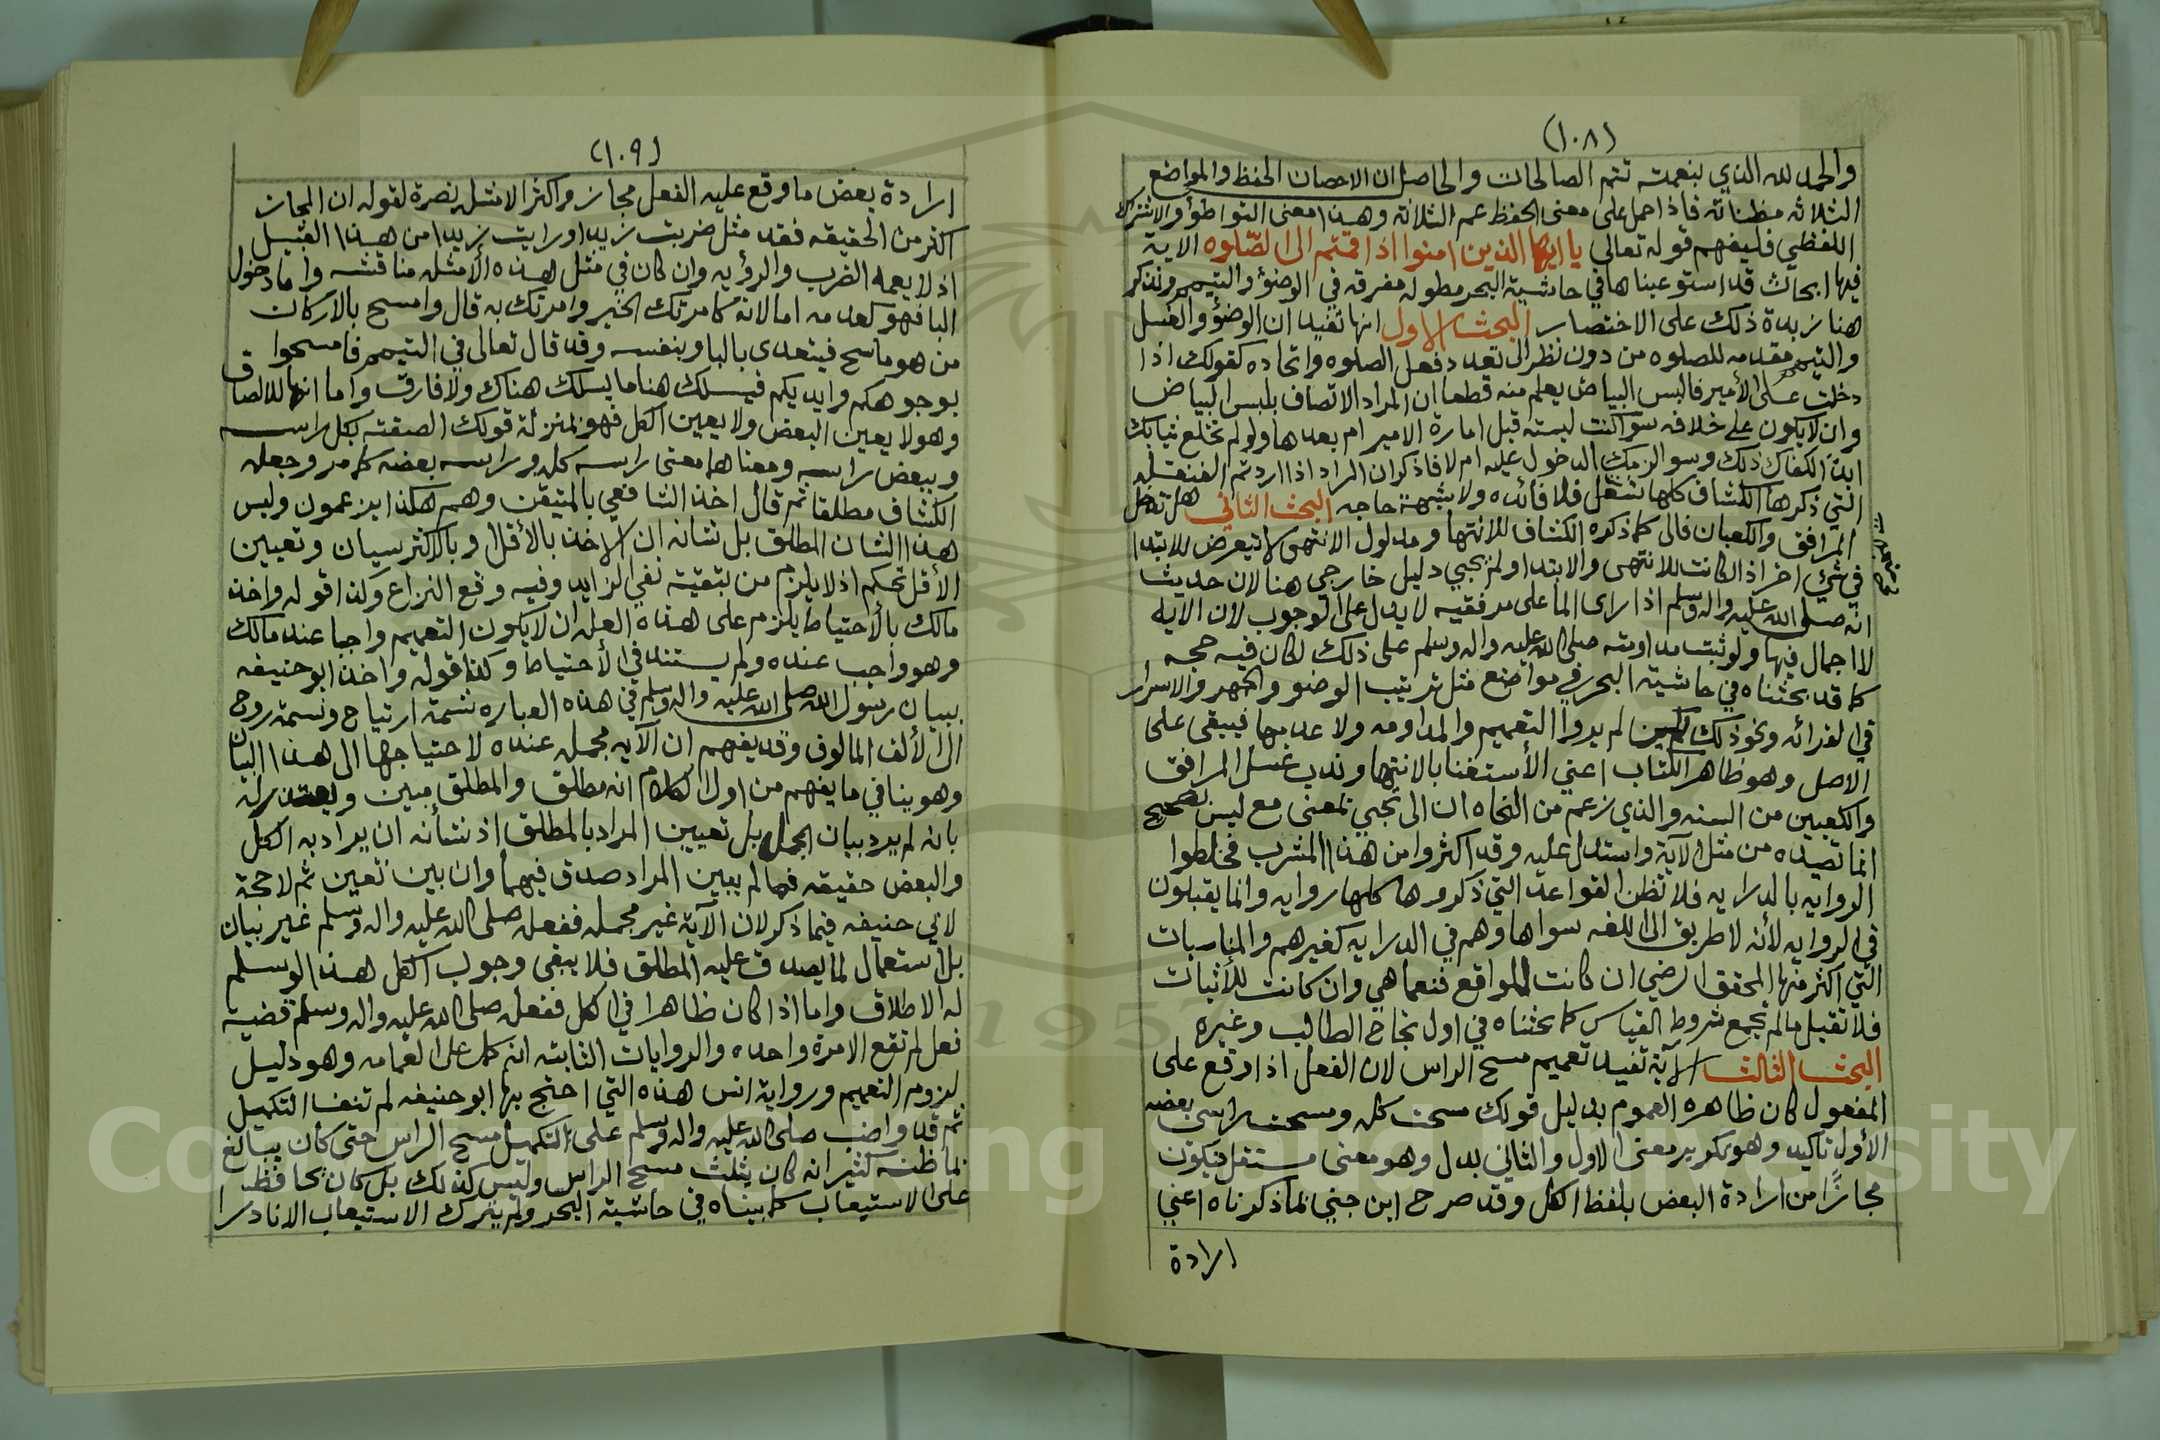 (١٠٨)
والحمد لله الذي بنعمته تتم الصالحات والحاصل ان الاحصان الحفظ والمواضع
الثلاثه مظناته فاذا حمل على معنى الحفظ عم الثلاثة وهذا معنى التواطؤ والاشتراك
اللفظي فليفهم قوله تعالى يا ايها الذين امنوا اذا قمتم الى الصلوه الاية
فيها ابحاث قد استوعبناها في حاشية البحر مطوله مفرقه في الوضؤ والتيمم ونذكر
هنا زبدة ذلك على الاختصار البحث الاول انها تفيد ان الوضؤ والغسل
والتيمم مقدمه للصلوه من دون نظر الى تعدد فعل الصلوه واتحاده كقولك اذا
دخلت على الأمير فالبس البياض يعلم منه قطعا ان المراد الاتصاف بلبس البياض
وان لا يكون على خلافه سوا كنت لبسته قبل امارة الامير ام بعدها ولو لم تخلع ثيابك
ابدا لكفاك ذلك وسوا لزمك الدخول عليه ام لا فاذكر ان المراد اذا اردتم الفنقله
التي ذكرها الكشاف كلها شغل فلا فائده ولا بثبهة حاجه البحث الثاني هل تدخل
المرافق والكعبان فالى كما ذكره الكشاف للانتها ومدلول الانتهى لا يتعرض للابتدا
في شيء اخر اذا كانت للانتهى والابتدا ولم يجيي دليل خارجي هنا لان حديث
انه صلى الله عليه واله وسلم اذا رأى الما على مرفقيه لا يدل على الوجوب لان الايه
لا اجمال فيها ولو ثبت مداومته صلى الله عليه واله وسلم على ذلك لكان فيه حجه
كما قد بحثناه في حاشية البحر في مواضع مثل ترتيب الوضو والجهر والاسرار
في القرائه ونحو ذلك لكن لم يرووا التعميم والمداومه ولا عدمها فيبقى على
الاصل وهو ظاهر الكتاب اعني الأستغنا بالانتها وندب غسل المرافق
والكعبين من السنه والذي زعم من النحاه ان الى تجيي بمعنى مع ليس بصحيح
انما تصيده من مثل الآية واستدل عليه وقد اكثروا من هذا المشرب فخلطوا
الروايه بالدرايه فلا تظن القواعد التي ذكروها كلها روايه وانما يقبلون
في الروايه لأنه لا طريق الى اللغه سواها وهم في الدرايه كغيرهم والمناسبات
التي اكثر منها المحقق الرضي ان كانت للواقع فنعما هي وان كانت للأثبات
فلا تقبل ما لم تجمع شروط القياس كما بحثناه في اول نجاح الطالب وغيره
البحث الثالث الآية تفيد تعميم مسح الراس لان الفعل اذا وقع على
المفعول كان ظاهره العموم بدليل قولك مسحت كله ومسحت راسي بعضه
الأول تاكيد وهو تكرير معنى الاول والثاني بدل وهو معنى مستقل فيكون
مجازًا من ارادة البعض بلفظ الكل وقد صرح ابن جني بما ذكرناه اعني
ارادة
(١٠٩)
ارادة بعض ما وقع عليه الفعل مجاز واكثر الامثله نصرة لقوله ان المجاز
اكثر من الحقيقه فقد مثل ضربت زيدا ورايت زيدا من هذا القبيل
اذ لا يعمه الضرب والرؤيه وان كان في مثل هذه الأمثله مناقشه واما دخول
البا فهو كعدمه اما لانه كامرتك الخير وامرتك به قال وامسح بالاركان
من هو ماسح فيتعدى بالبا وبنفسه وقد قال تعالى في التيمم فامسحوا
بوجوهكم وايديكم فيسلك هنا ما يسلك هناك ولا فارق واما انها للالصاق
وهو لا يعين البعض ولا يعين الكل فهو بمنزلة قولك الصقته بكل راسه
وببعض راسه ومعناهما معنى راسه كله وراسه بعضه كما مر وجعله
الكشاف مطلقا ثم قال اخذ الشافعي بالمتيقن وهم هكذا يزعمون وليس
هذا الشان المطلق بل شانه ان الاخذ بالأقل وبالاكثر سيان وتعيين
الأقل تحكم اذ لا يلزم من تيقنه نفي الزايد وفيه وقع النزاع وكذا قوله واخذ
مالك بالأحتياط يلزم على هذه العله ان لا يكون التعميم واجبا عند مالك
وهو واجب عنده ولم يستند في الأحتياط وكذا قوله واخذ ابو حنيفه
ببيان رسول الله صلى الله عليه واله وسلم في هذه العباره شمة ارتياح ونسمة روح
الى الألف المالوف وقد يفهم ان الآيه مجمله عنده لاحتياجها الى هذا البيان
وهو ينافي ما يفهم من اول الكلام انه مطلق والمطلق مبين ويعتذر له
بانه لم يرد ببيان المجمل بل تعيين المراد بالمطلق اذ شأنه ان يراد به الكل
والبعض حقيقه فما لم يبين المراد صدق فيهما وان بين تعين ثم لا حجة
لابي حنيفه فيما ذكر لان الآية غير مجمله ففعله صلى الله عليه واله وسلم غير بيان
بل استعمال لما يصدق عليه المطلق فلا يبقى وجوب الكل هذا لو سلم
له الاطلاق واما اذا كان ظاهرا في الكل ففعله صلى الله عليه واله وسلم قضية
فعل لم تقع الا مرة واحده والروايات الثابته انه كمل على العمامه وهو دليل
لزوم التعميم ورواية انس هذه التي احتج بها ابو حنيفه لم تنف التكميل
ثم قد واضب صلى الله عليه واله وسلم على التكميل مسح الراس حتى كان يبالغ
بما ظنه كثير انه كان يثلث مسح الراس وليس كذلك بل كان يحافظ
على الاستيعاب كما بيناه في حاشية البحر ولم يترك الاستيعاب الا نادرا